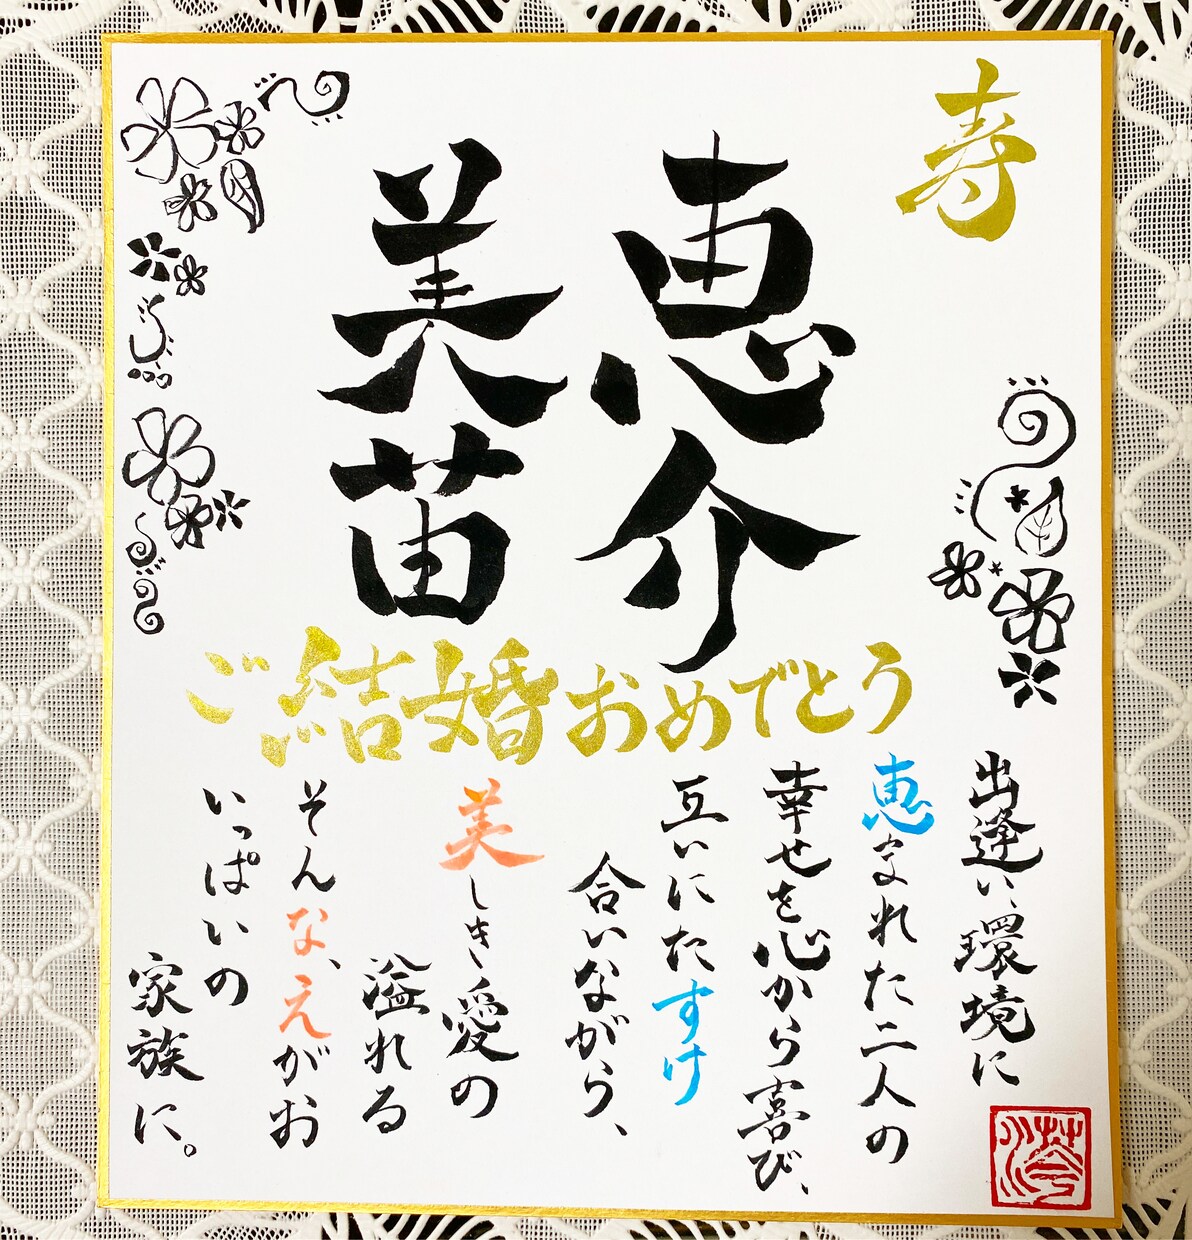 寿
恵介
美苗
ご結婚おめでとう
出逢い、環境に
恵まれた二人の
幸せを心から喜び、
互いにたすけ
合いながら、
美しき愛の
溢れる
そんな、えがお
いっぱいの
家族に。